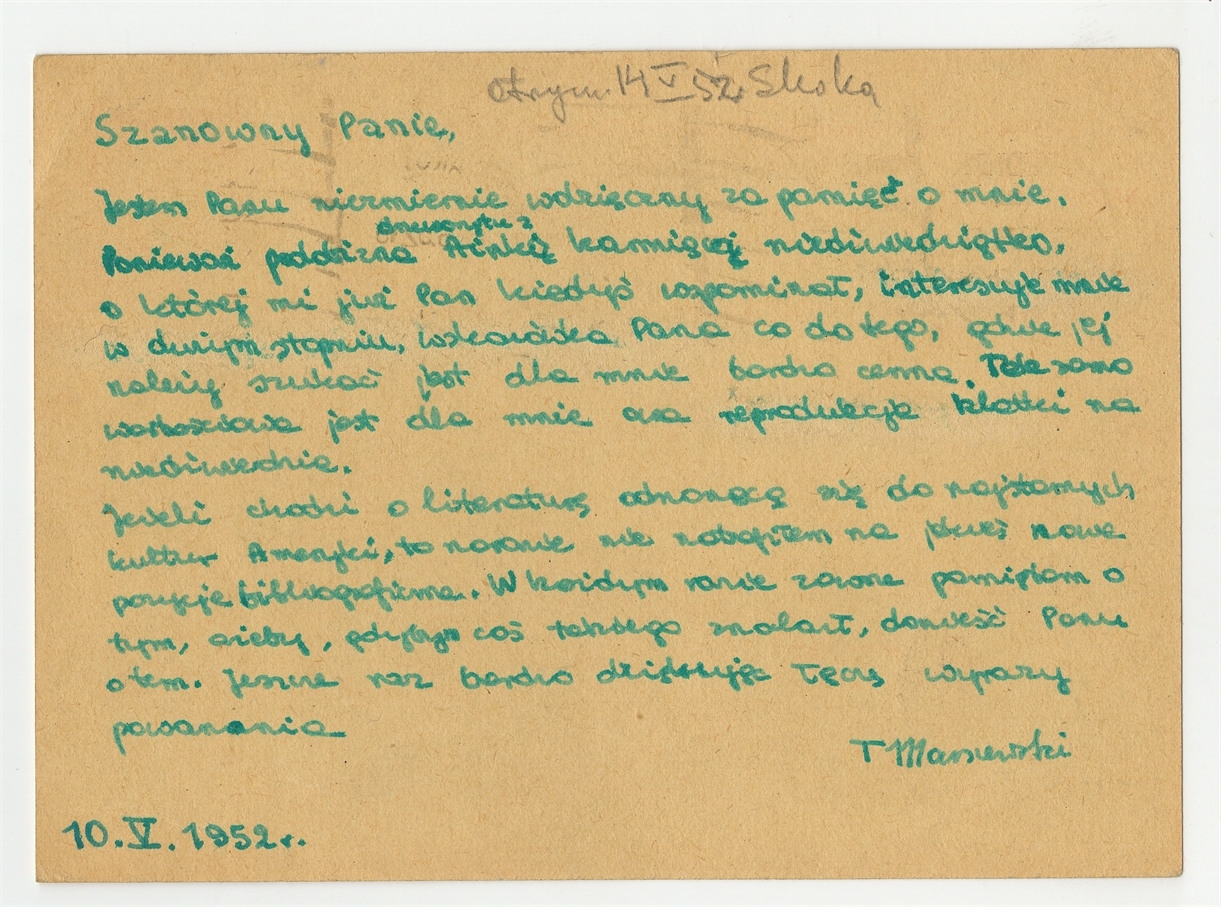 otrzym. 14 V 52. Skoka
Szanowny Panie,
Jestem Panu niezmiernie wdzięczny za pamięć o mnie.
drzeworytu z
Ponieważ podobizna karmiącej niedźwiedziątko,
o której mi już Pan kiedyś wspominał, interesuje mnie
w dużym stopniu, wskazówka Pana co do tego, gdzie jej
należy szukać jest dla mnie bardzo cenna. Tak samo
wartościowa jest dla mnie owa reprodukcja klatki na
niedźwiednia.
Jeżeli chodzi o literaturę odnoszącą się do najstarszych
kultur Ameryki, to narazie nie natrafiłem na jakieś nowe
pozycje bibliograficzne. W każdym razie zawsze pamiętam o
tym, ażeby, gdybym coś takiego znalazł, donieść Panu
o tem. Jeszcze raz bardzo dziękując łączę wyrazy
poważania
T Marszewski
10. V. 1952 r.